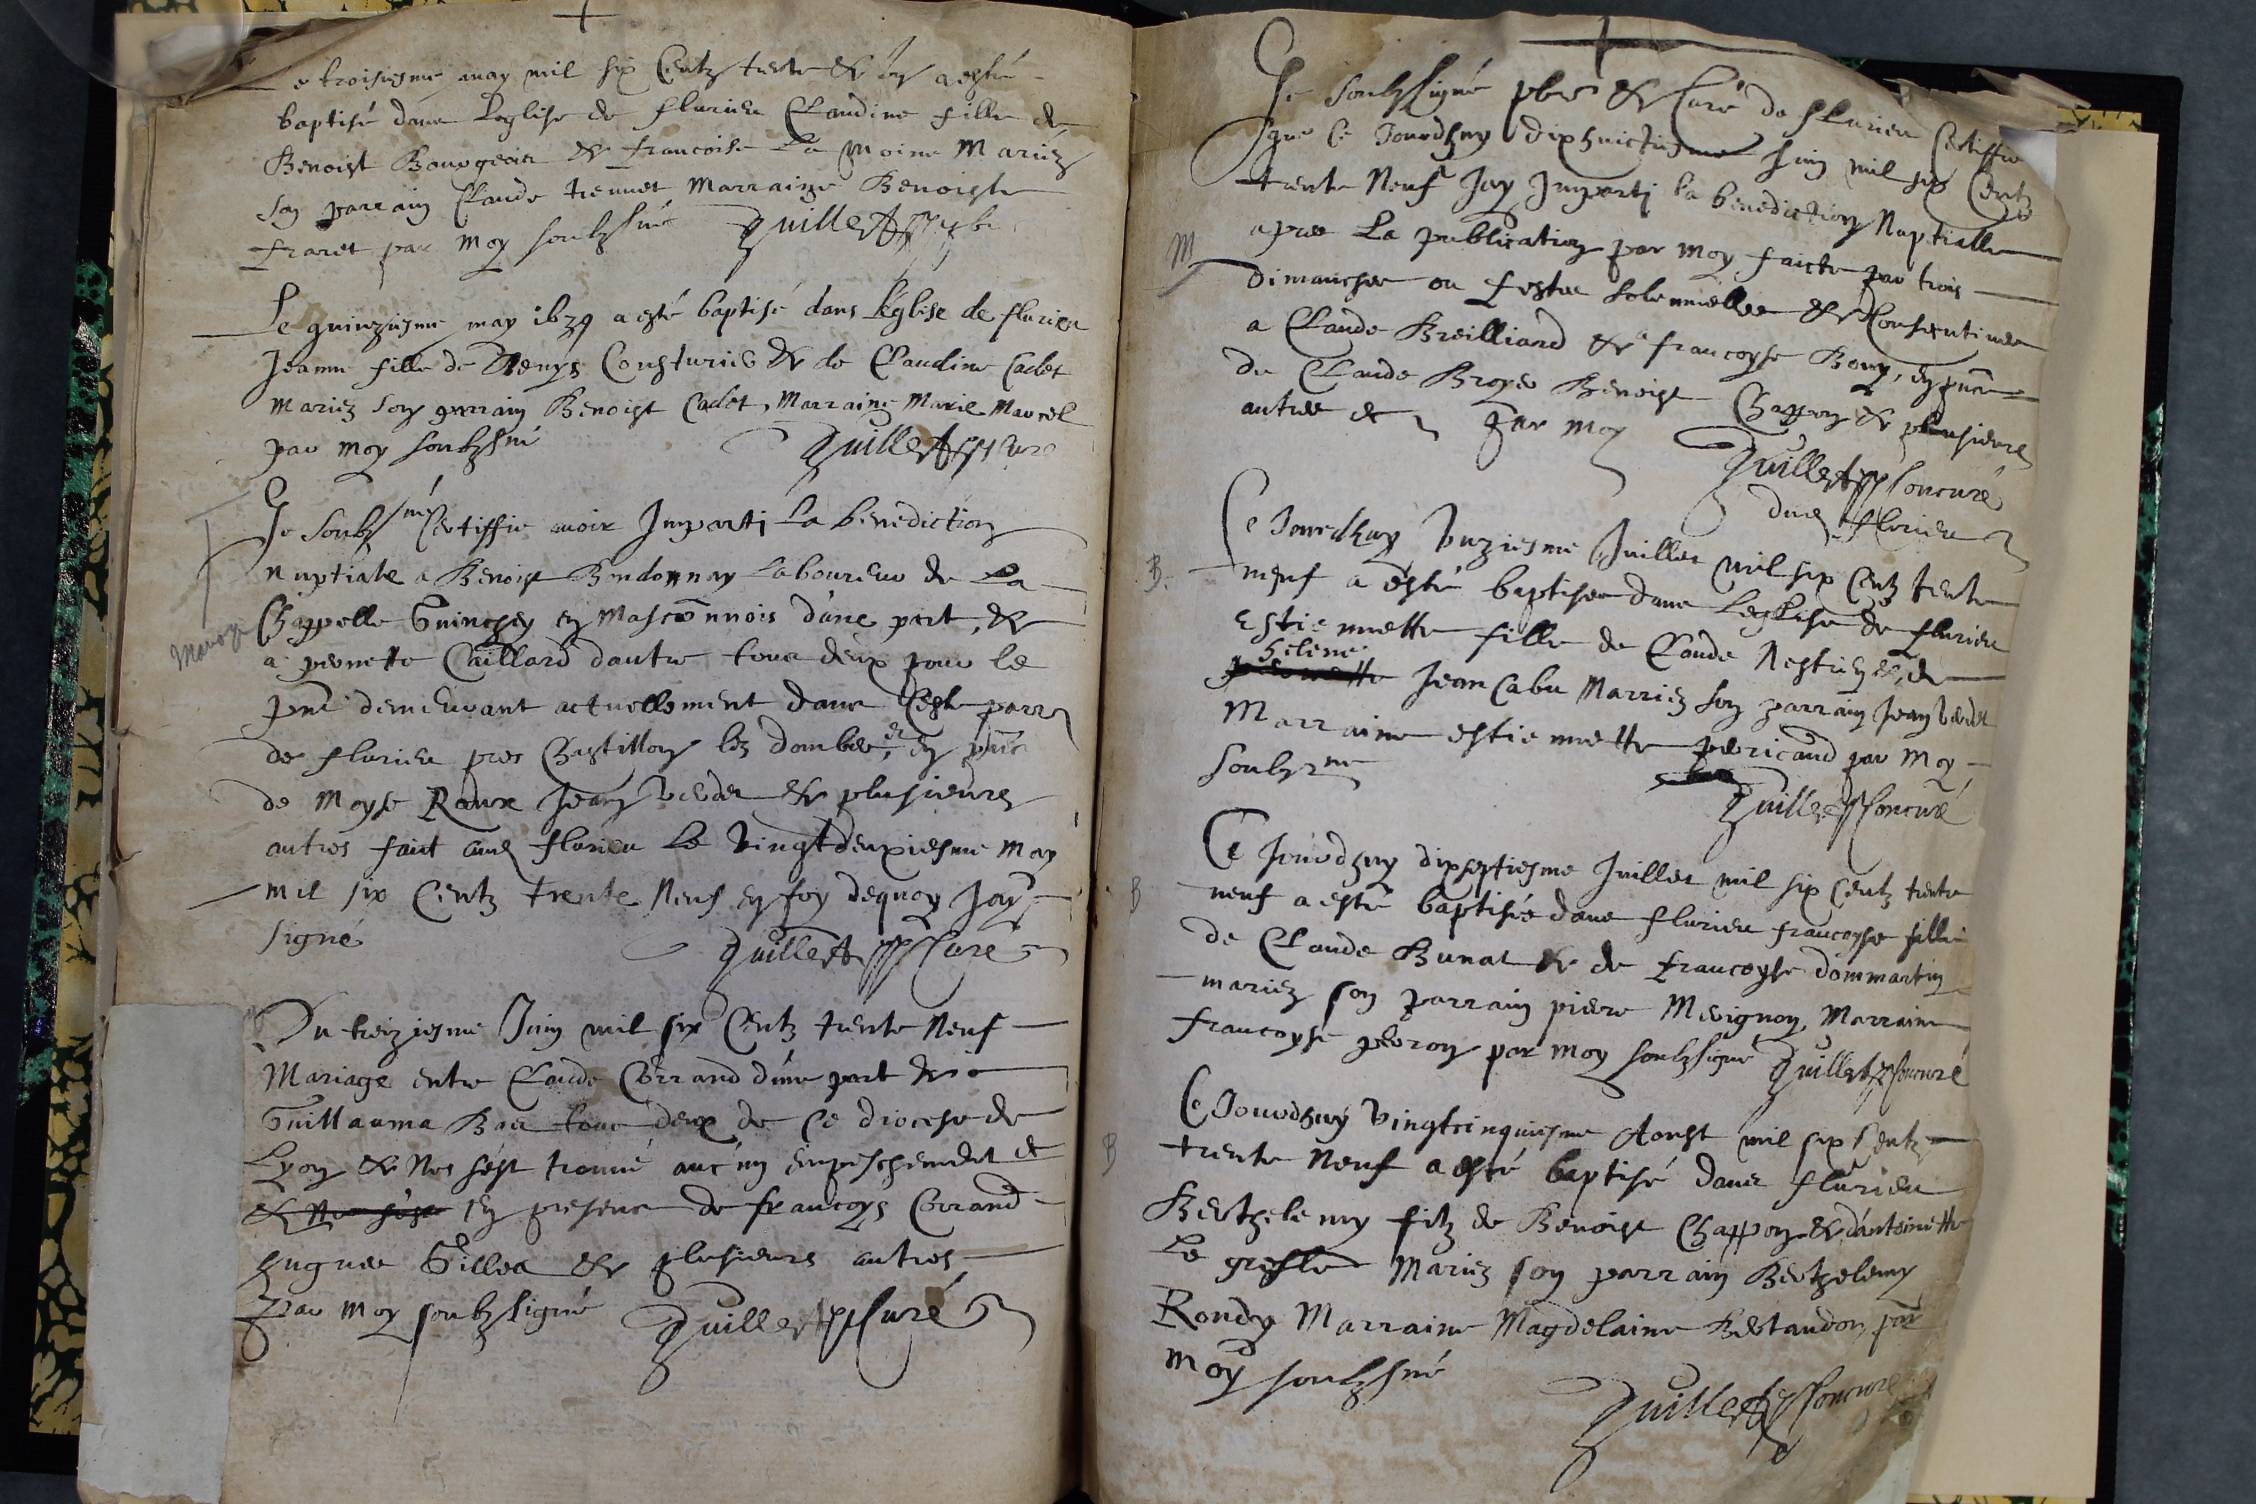 Le troisiesme may mil six Centz trente & a esté
baptisé dans Leglise de flurieu Claudine fille de
Benoist Bourgeois & francoise La Moine Mariez
son parrain Claude trennet Marraine Benoiste
fraret par moy soubzsiné Quillet
Le quinziesme may 1639 a esté baptisé dans l'église de flurieu
Jeanne fille de Denys Cousturier & de Claudine Cadet
mariez son parrain Benoist Cadot, Marraine Marie Maurel
par moy soubzsiné Quillet Curé
Je soubzsiné Certiffie avoir Imparti La benediction
nuptiale a Benoist Bordonnay laboureur de La
Chappelle Guinchey en Masconnois d'une part, &
a pernette Caillard dautre tous deux pour le
pnt demeurant actuellement dans Ceste parr
de flurieu pres Chastillon lez dombes, et en pnce
de Moyse Roux Jean Verdet & plusieurs
autres fait aud flurieu Le vingtdeuxiesme May
mil six Centz trente Neuf en foy dequoy Jay
signé Quillet Curé
Du treiziesme Juin mil six Centz trente Neuf
Mariage entre Claude Corrand d'une part &
Guillauma Bas tous deux de Ce diocese de
Lyon & Ne s'est trouvé aucun empeschement &
& Ne s'est En presence de francoys Corrand
hugues Gilles & plusieurs autres
Par moy soubzsigné Quillet Curé
Je soubzsigné pbre & Curé de flurieu Certiffie
que Ce Jourdhuy dixhuictiesme Juin mil six Centz
trente Neuf Jay Imparti la benediction Nuptialle
M
apres La publication par moy faicte par trois
dimanches ou festes solennelles & Consecutives
a Claude Breilliard & a francoyse Bony, en pnce
de Claude Broyer Benoist Chappon & plusieurs
autres & Par moy
Quillet Curé
dud flurieu
Ce Jourdhuy Unziesme Juillet mil six Centz trente
B.
neuf a esté baptisee dans Leglise de flurieu
Estiennette fille de Claude Nestier & de
helene
Jean Cabu Mariez son parrain Jean Verdet
Marraine estiennette pericaud par Moy
soubzsiné
Quillet Curé
Ce Jourdhuy dixseptiesme Juillet mil six Centz trente
B
neuf a esté baptisée dans flurieu francoyse fille
de Claude Bunat & de francoyse dommartin
mariez son parrain pierre Merignon, Marraine
francoyse perron par moy soubzsigné Quillet Curé
Ce Jourdhuy Vingtcinquiesme Aoust mil six Centz
B
trente neuf a esté baptisé dans flurieu
Berthelemy filz de Benoist Chappon & dantoinette
Le gresle Mariez son parrain Berthelemy
Rondy Marraine Magdelaine Bertaudon par
moy soubzsiné
Quillet Curé